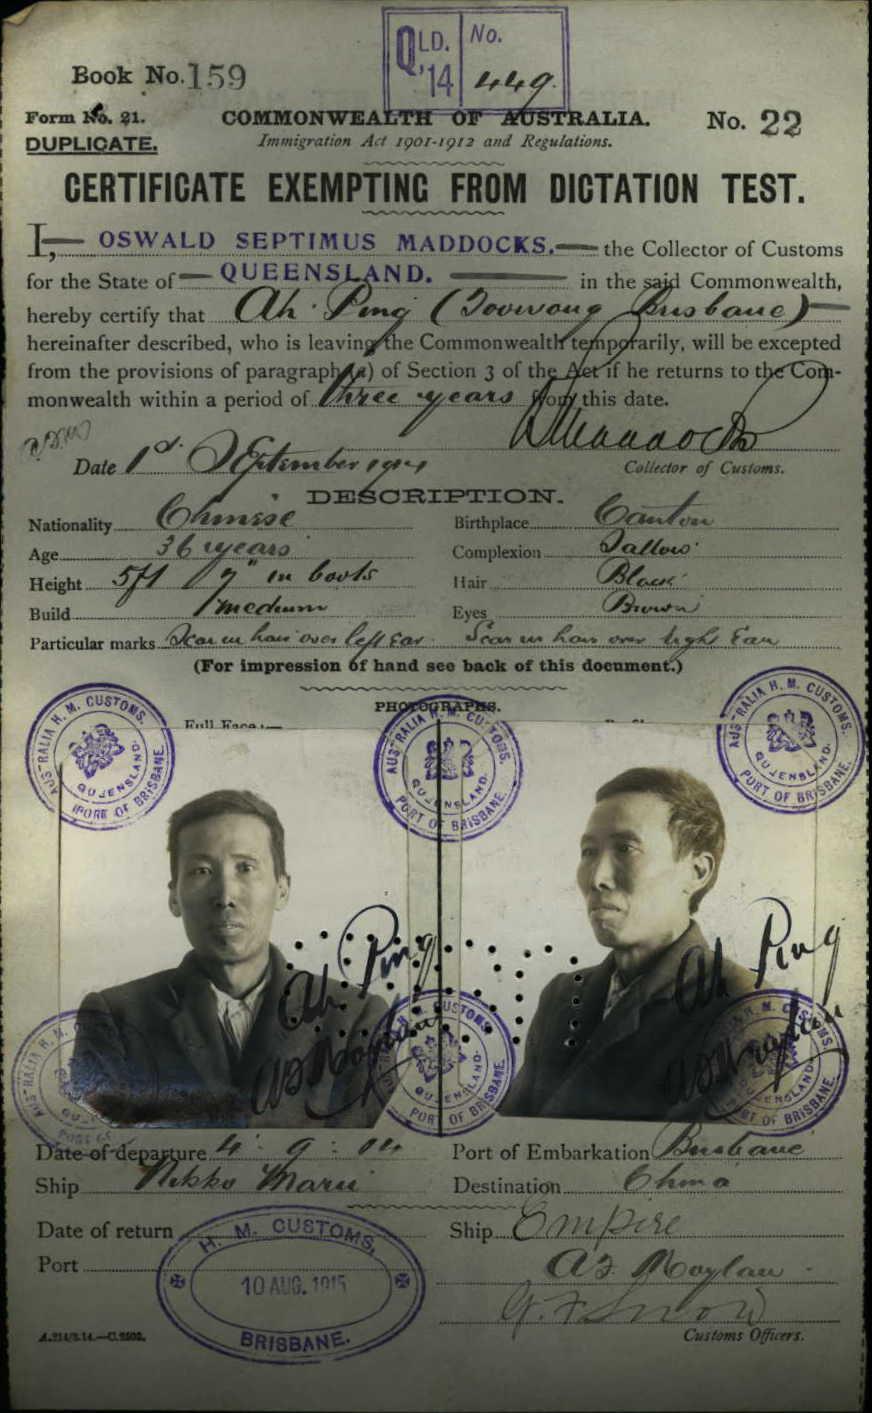 QLD. No.
'14 449.
Book No. 159
Form No. 21.
DUPLICATE.
COMMONWEALTH OF AUSTRALIA.
Immigration Act 1901-1912 and Regulations.
No. 22
CERTIFICATE EXEMPTING FROM DICTATION TEST.
I, OSWALD SEPTIMUS MADDOCKS. the Collector of Customs
for the State of QUEENSLAND. in the said Commonwealth,
hereby certify that Ah Ping (Toowong Brisbane)
hereinafter described, who is leaving the Commonwealth temporarily, will be excepted
from the provisions of paragraph (a) of Section 3 of the Act if he returns to the Com-
monwealth within a period of three years from this date.
Date 1st September 1914
Collector of Customs.
DESCRIPTION.
Nationality Chinese Birthplace Canton
Age 36 years Complexion Sallow
Height 5ft 7" in boots Hair Black
Build medium Eyes Brown
Particular marks Scar in hair over left Ear. Scar in hair over right Ear
(For impression of hand see back of this document.)
PHOTOGRAPHS.
Full Face:—
AUSTRALIA H. M. CUSTOMS.
QUEENSLAND
PORT OF BRISBANE.
AUSTRALIA H. M. CUSTOMS.
QUEENSLAND
PORT OF BRISBANE.
AUSTRALIA H. M. CUSTOMS.
QUEENSLAND
PORT OF BRISBANE.
Ah Ping
Ah Ping
AUSTRALIA H. M.
PORT OF
AUSTRALIA H. M. CUSTOMS.
QUEENSLAND
PORT OF BRISBANE.
H. M. CUSTOMS.
QUEENSLAND
PORT OF BRISBANE.
Date of departure 4 : 9 : 14 Port of Embarkation Brisbane
Ship Nikko Maru Destination China
Date of return Ship Empire
Port
H. M. CUSTOMS,
10 AUG. 1915
BRISBANE.
Customs Officers.